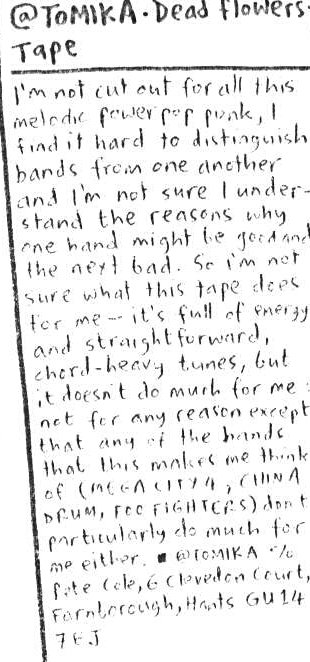 @TOMIKA • Dead flowers.
Tape
I'm not cut out for all this
melodic power pop punk, I
find it hard to distinguish
bands from one another
and I'm not sure I under-
stand the reasons why
one band might be good and
the next bad. So i'm not
sure what this tape does
for me -- it's full of energy
and straightforward,
chord-heavy tunes, but
it doesn't do much for me :
not for any reason except
that any of the bands
that this makes me think
of (MEGA CITY 4, CHINA
DRUM, FOO FIGHTERS) don't
particularly do much for
me either. ▪ @TOMIKA c/o
Pete Cole, 6 Clevedon Court,
Farnborough, Hants GU14
7EJ